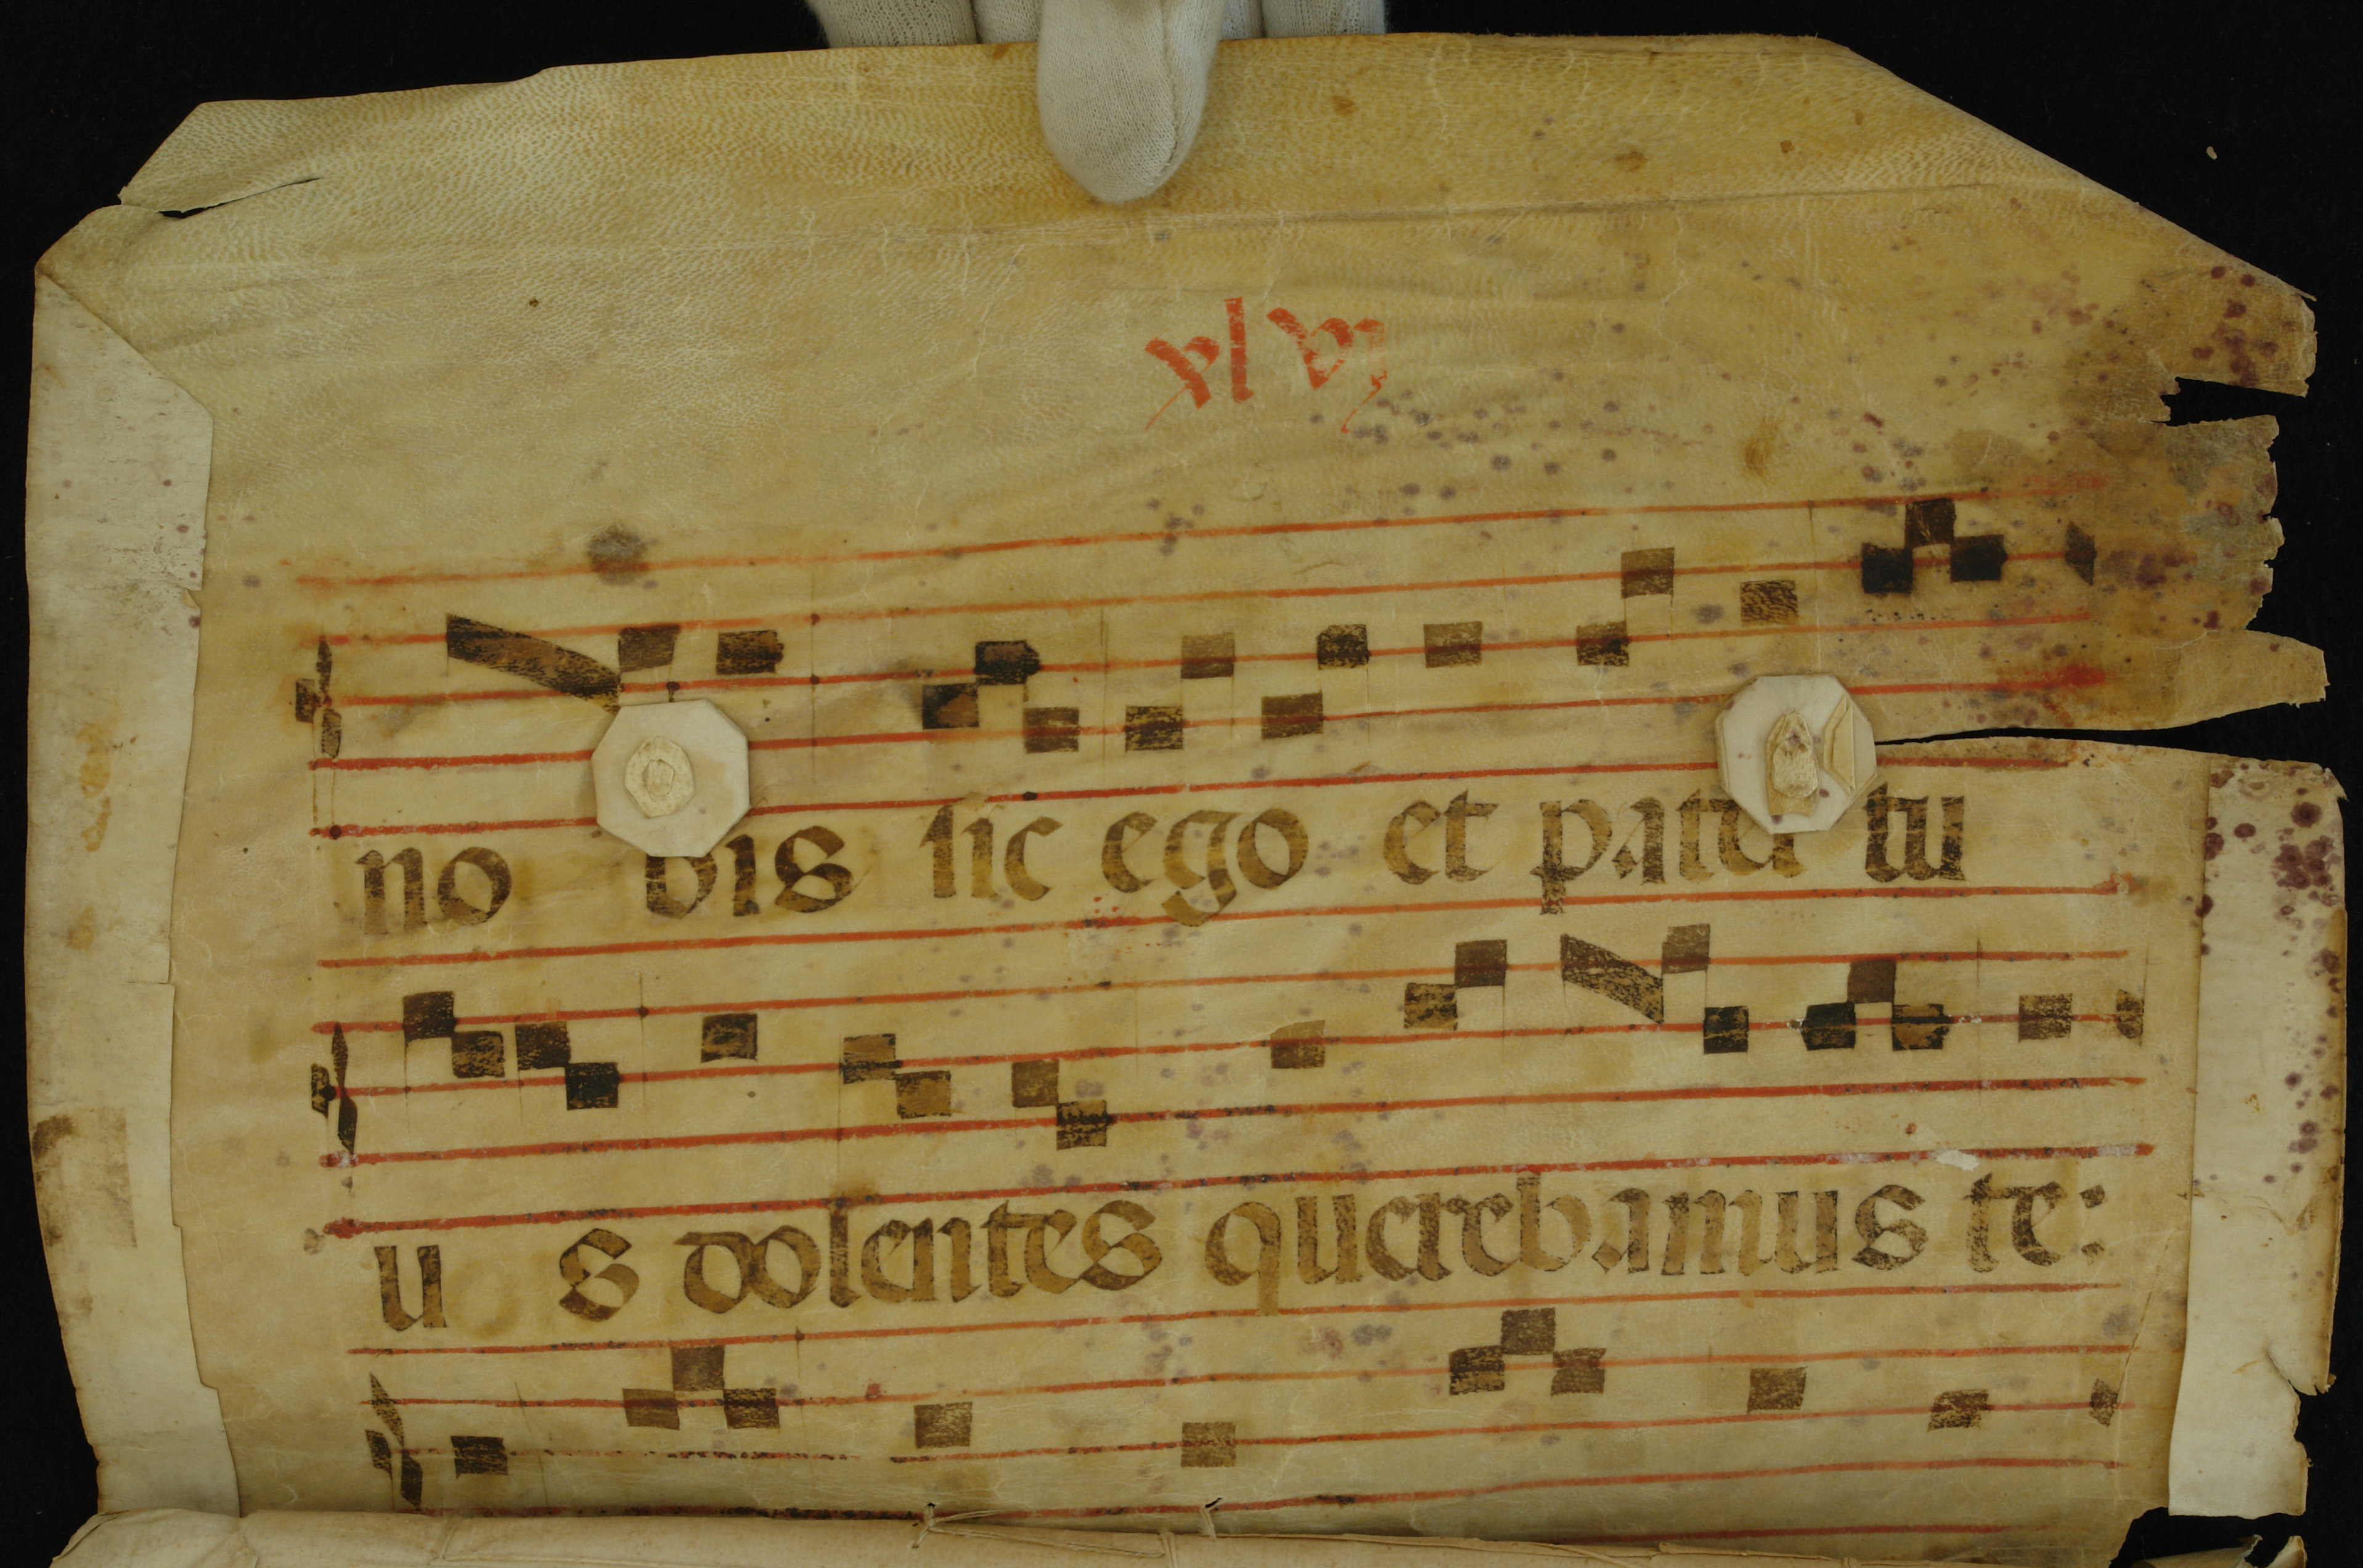 xlvj
no bis sic ego et pater tu
u s dolentes querebamus te: